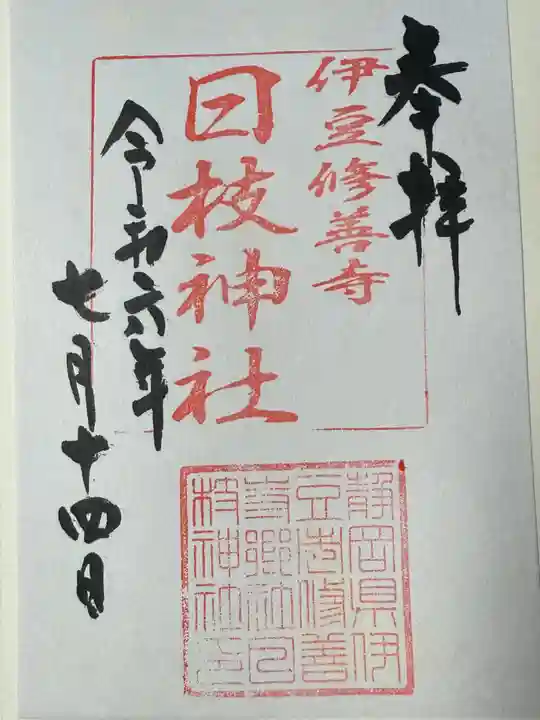 奉拝
伊豆修善寺
日枝神社
令和六年
七月十四日
静岡県伊
豆市修善
寺郷社日
枝神社印